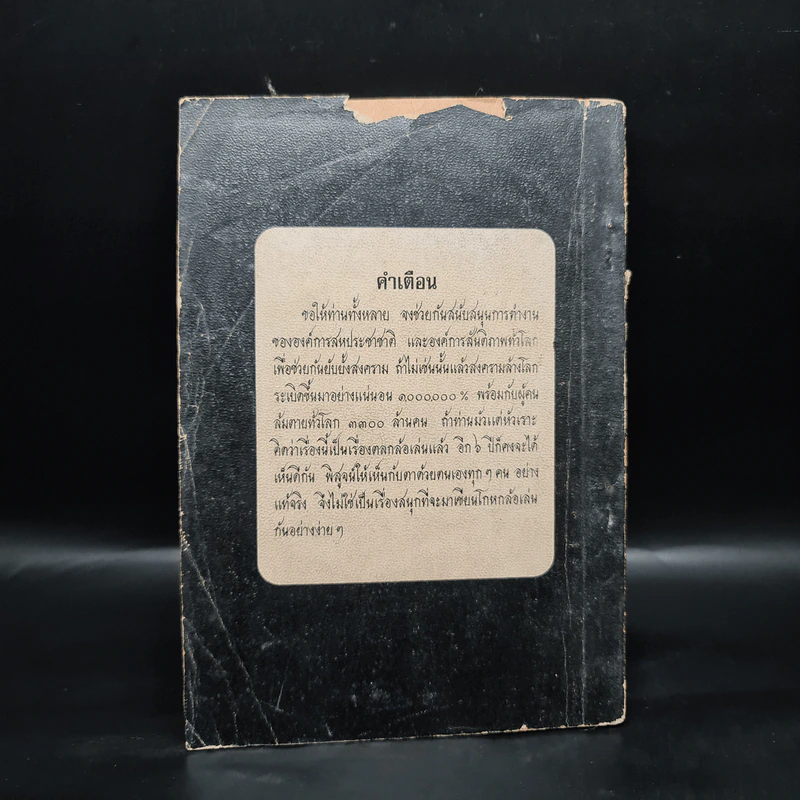 คำเตือน
ขอให้ท่านทั้งหลาย จงช่วยกันสนับสนุนการทำงาน
ขององค์การสหประชาชาติ และองค์การสันติภาพทั่วโลก
เพื่อช่วยกันยับยั้งสงคราม ถ้าไม่เช่นนั้นแล้วสงครามล้างโลก
ระเบิดขึ้นมาอย่างแน่นอน ๑,๐๐๐,๐๐๐ % พร้อมกับผู้คน
ล้มตายทั่วโลก ๓๓๐๐ ล้านคน ถ้าท่านมัวแต่หัวเราะ
คิดว่าเรื่องนี้เป็นเรื่องตลกล้อเล่นแล้ว อีก ๖ ปีก็คงจะได้
เห็นดีกัน พิสูจน์ให้เห็นกับตาด้วยตนเองทุก ๆ คน อย่าง
แท้จริง จึงไม่ใช่เป็นเรื่องสนุกที่จะมาเขียนโกหกล้อเล่น
กันอย่างง่าย ๆ